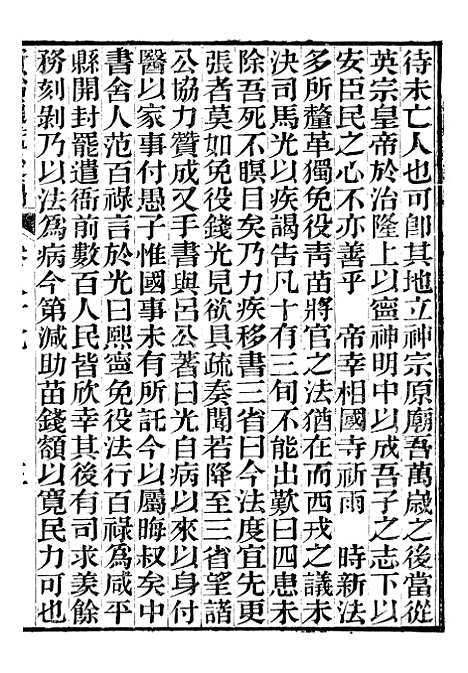 待未亡人也可卽其地立神宗原廟吾萬歲之後當從
英宗皇帝於治隆上以寧神明中以成吾子之志下以
安臣民之心不亦善乎　帝幸相國寺祈雨　時新法
多所釐革獨免役靑苗將官之法猶在而西戎之議未
決司馬光以疾謁告凡十有三旬不能出歎曰四患未
除吾死不瞑目矣乃力疾移書三省曰今法度宜先更
張者莫如免役錢光見欲具疏奏聞若降至三省望諸
公協力贊成又手書與呂公著曰光自病以來以身付
醫以家事付愚子惟國事未有所託今以屬晦叔矣中
書舍人范百祿言於光曰熙寧免役法行百祿爲咸平
縣開封罷遣衙前數百人民皆欣幸其後有司求羨餘
務刻剝乃以法爲病今第減助苗錢額以寬民力可也